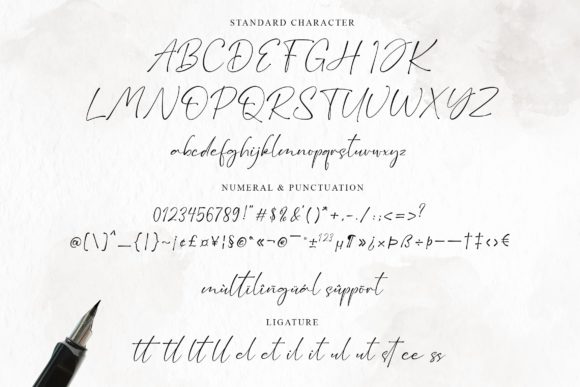 STANDARD CHARACTER
ABCDEFGHIJK
LMNOPQRSTUVWXYZ
abcdefghijklmnopqrstuvwxyz
NUMERAL & PUNCTUATION
0123456789!"#$%&'()*+,-./:;<=>?
@[\]^_{|}~¡¢£¤¥¦§©ª«¬®¯°±²³µ¶»¿×Þß÷þ–—†‡‹›€
multilingual support
LIGATURE
tt tl lt ll el et il it ul ut st ee ss